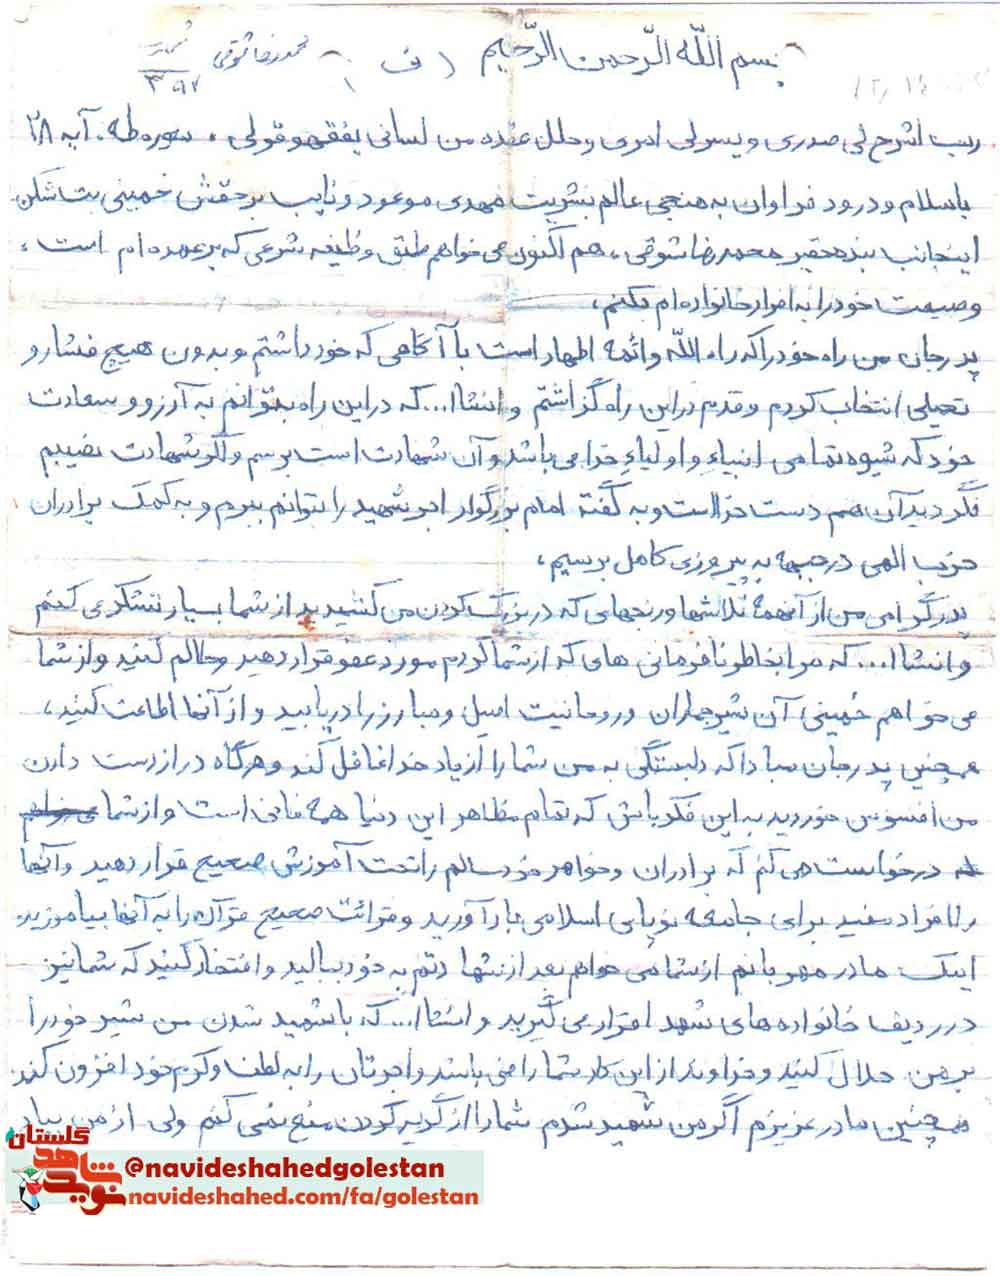 بسم اللّه الرّحمن الرّحیم
(ف ۱)
محمدرضا شوقی
رب اشرح لی صدری و یسرلی امری و حلل عقده من لسانی یفقهو قولی. سوره طه. آیه ۲۸
باسلام و درود فراوان به منجی عالم بشریت مهدی موعود و نایب برحقش خمینی بت شکن
اینجانب بنده حقیر محمدرضا شوقی، هم اکنون می خواهم طبق وظیفه شرعی که بر عهده ام است،
وصیت خود را به افراد خانواده ام بکنم،
پدر جان من راه خود را که راه اللّه و ائمه اطهار است با آگاهی که خود داشتم و بدون هیچ فشار و
تحیلی انتخاب کردم و قدم در این راه گزاشتم و انشاا... که در این راه بتوانم به آرزو و سعادت
خود که شیوه تمامی انبیاء و اولیاء خدا می باشد و آن شهادت است برسم و اگر شهادت نصیبم
نگردید آن هم دست خدا است و به گفته امام بزرگوار اجر شهید را بتوانم ببرم و به کمک برادران
حزب الهی در جبهه به پیروزی کامل برسیم،
پدر گرامی من از آنهمه تلاشها و رنجهای که در بزرگ کردن من کشیدید از شما بسیار تشکر می کنم
و انشاا... که مرا بخاطر نافرمانی های که از شما کردم مورد عفو قرار دهید و حلالم کنید و از شما
می خواهم خمینی آن شیر جماران و روحانیت اصیل و مبارز را دریابید و از آنها اطاعت کنید،
همچنین پدر جان مبادا که دلبستگی به من شما را از یاد خدا غافل کند و هرگاه در از دست دادن
من افسوس خوردید به این فکر باش که تمام مظاهر این دنیا همه فانی است و از شما
درخواست می کنم که برادران و خواهر خردسالم را تحت آموزش صحیح قرار دهید و آنها
را افراد مفید برای جامعه نوپای اسلامی بار آورید و قرائت صحیح قرآن را به آنها بیاموزید.
اینک مادر مهربانم از شما می خواهم بعد از شهادتم به خود ببالید و افتخار کنید که شما نیز
در ردیف خانواده های شهدا قرار می گیرید و انشاا... که با شهید شدن من شیر خود را
بر من حلال کنید و خداوند از این کار شما راضی باشد و اجرتان را به لطف و کرم خود افزون کند
همچنین مادر عزیزم اگر من شهید شدم شما را از گریه کردن منع نمی کنم ولی از من بیاد
گلستان
نوید شاهد
@navideshahedgolestan
navideshahed.com/fa/golestan